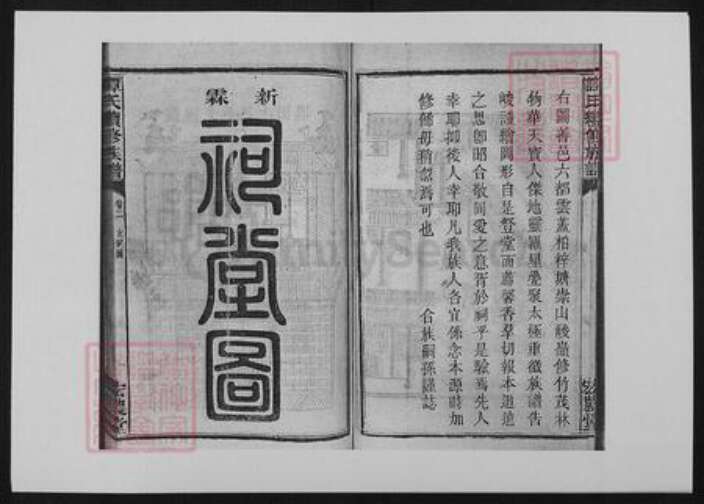 右圖善邑六都雲蓋柏梓壙崇山峻嶺修竹茂林
物華天寶人傑地靈羅星疊聚太極重徵族譜告
竣謹繪圖形自是登堂而薦馨香羣切報本追遠
之思卽昭合敬同愛之意胥於祠乎是驗焉先人
幸耶抑後人幸耶凡我族人各宜係念本源時加
修葺毋稍懈焉可也
合族嗣孫謹誌
新霖
祠堂圖
氏續修族譜
卷二